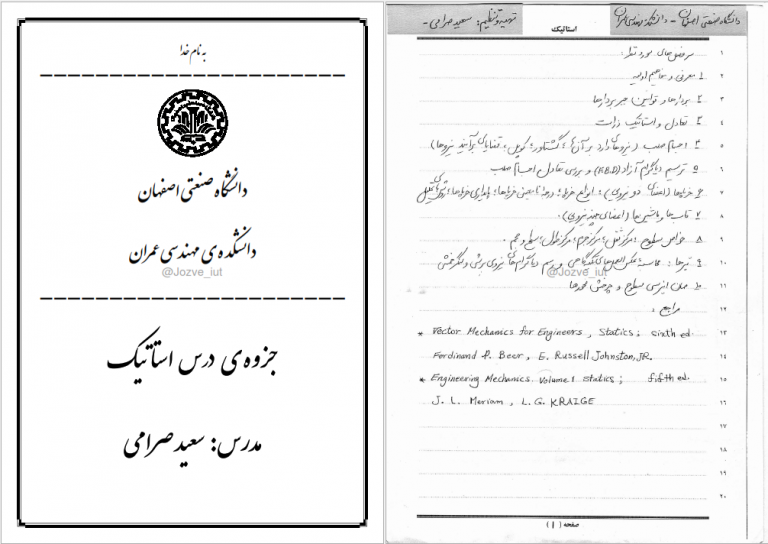 به نام خدا
دانشگاه صنعتی اصفهان
دانشکده‌ی مهندسی عمران
@Jozve_iut
جزوه‌ی درس استاتیک
مدرس: سعید صرامی
دانشگاه صنعتی اصفهان - دانشکده مهندسی عمران
استاتیک
تهیه و تنظیم: سعید صرامی -
۱ سرفصل‌های مورد نظر:
۲ ۱ معرفی و مفاهیم اولیه
۳ ۲ بردارها و قوانین جبر بردارها
۴ ۳ تعادل و استاتیک ذرات
۵ ۴ اجسام صلب (نیروهای وارد بر آن‌ها؛ گشتاور؛ کوپل؛ قضایای برآیند نیروها)
۶ ۵ ترسیم دیاگرام آزاد (F.B.D) و بررسی تعادل اجسام صلب
۷ ۶ خرپاها (اعضای دو نیرویی): انواع خرپا؛ درجه نامعینی خرپاها؛ پایداری خرپاها؛ روش‌های تحلیل
۸ ۷ قاب‌ها و ماشین‌ها (اعضای چند نیرویی).
۹ ۸ خواص سطوح؛ مرکز ثقل؛ مرکز جرم؛ مرکز طول؛ سطح و حجم.
۱۰ ۹ تیرها: محاسبه عکس‌العمل‌های تکیه‌گاهی و رسم دیاگرام‌های نیروی برشی و لنگر خمشی
@Jozve_iut
۱۱ ۱۰ ممان اینرسی سطوح و چرخش محورها
۱۲ مراجع:
۱۳ * Vector Mechanics for Engineers, Statics; sixth ed.
۱۴ Ferdinand P. Beer, E. Russell Johnston, JR.
۱۵ * Engineering Mechanics. Volume 1 Statics; fifth ed.
۱۶ J. L. Meriam, L. G. KRAIGE
۱۷
۱۸
۱۹
۲۰
صفحه (1)